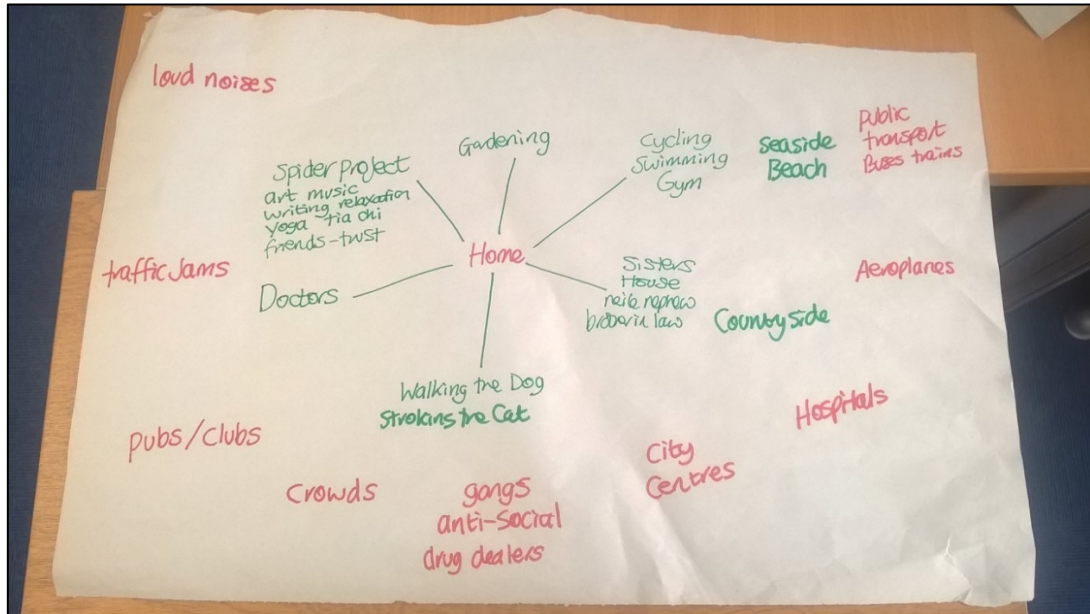 loud noises
Spider Project
art music
writing relaxation
yoga tia chi
friends-trust
Gardening
Cycling
Swimming
Gym
Seaside
Beach
Public
transport
Buses trains
traffic Jams
Home
Doctors
Sisters
House
neile nephew
brother in law
Countryside
Aeroplanes
Walking the Dog
Stroking the Cat
Hospitals
Pubs/clubs
Crowds
gangs
anti-social
drug dealers
City
Centres